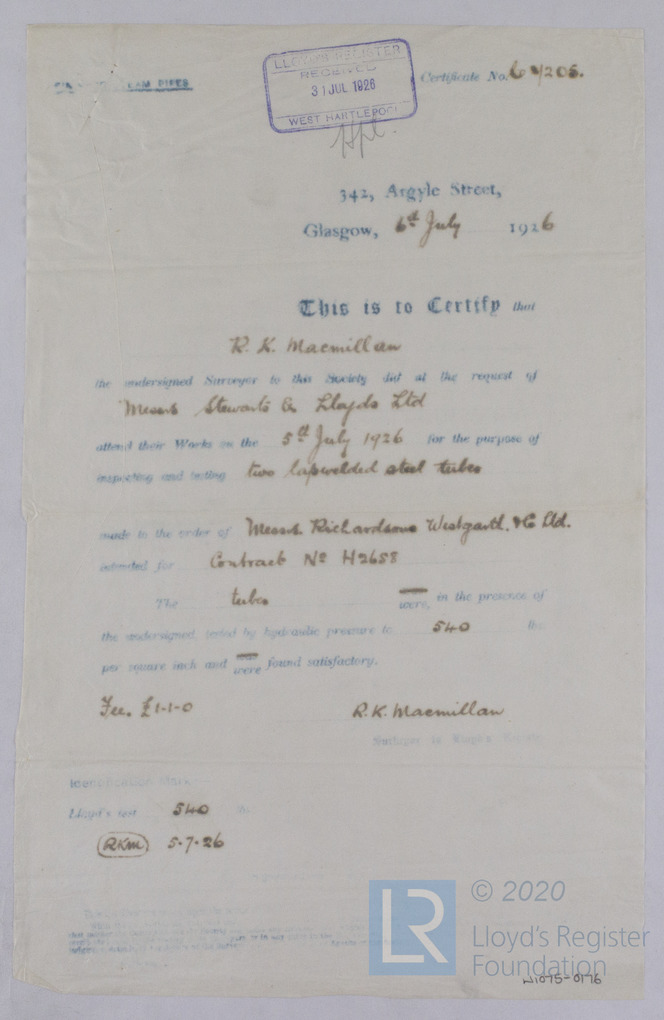 STEAM PIPES
LLOYD'S REGISTER
RECEIVED
31 JUL 1926
WEST HARTLEPOOL
Certificate No. 64205.
Hpl.
342, Argyle Street,
Glasgow, 6th July 1926
This is to Certify that
R. K. Macmillan
the undersigned Surveyor to this Society did at the request of
Messrs Stewarts & Lloyds Ltd
attend their Works on the 5th July 1926 for the purpose of
inspecting and testing two lapwelded steel tubes
made to the order of Messrs Richardsons Westgarth & Co Ltd.
intended for Contract No H2658
The tubes were, in the presence of
the undersigned, tested by hydraulic pressure to 540 lbs.
per square inch and were found satisfactory.
Fee. £1-1-0 R. K. Macmillan
Surveyor to Lloyd's Register
Identification Mark
Lloyd's test 540 lb.
RKM 5.7.26
© 2020
LR Lloyd's Register
Foundation
W1075-0176